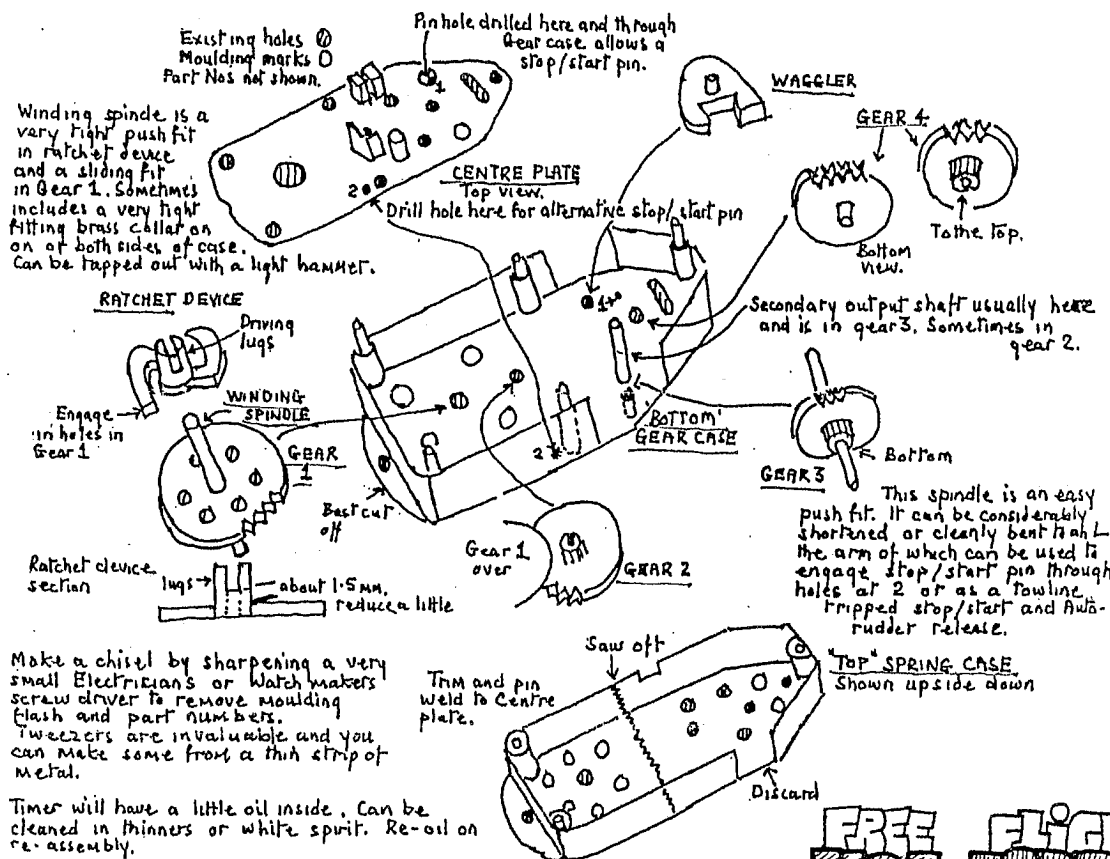 Existing holes
Moulding marks
Part Nos not shown.
Pinhole drilled here and through
Gear case allows a
stop/start pin.
1
WAGGLER
Winding spinde is a
very tight push fit
in ratchet device
and a sliding fit
in Gear 1. Sometimes
includes a very tight
fitting brass collar on
on or both sides of case.
Can be tapped out with a light hammer.
2
CENTRE PLATE
Top view.
Drill hole here for alternative stop/start pin
GEAR 4
Bottom
view.
To the top.
RATCHET DEVICE
Driving
lugs
Engage
in holes in
Gear 1
WINDING
SPINDLE
GEAR
1
1
Secondary output shaft usually here
and is in gear 3. Sometimes in
gear 2.
BOTTOM
GEAR CASE
2
GEAR 3
Bottom
Best cut
off
Gear 1
over
GEAR 2
Ratchet device
section
lugs
about 1·5 MM.
reduce a little
This spindle is an easy
push fit. It can be considerably
shortened or cleanly bent to an L
the arm of which can be used to
engage stop/start pin through
holes at 2 or as a towline
tripped stop/start and Auto-
rudder release.
Make a chisel by sharpening a very
small Electricians or Watchmakers
screw driver to remove moulding
flash and part numbers.
Tweezers are invaluable and you
can make some from a thin strip of
metal.
Timer will have a little oil inside. Can be
cleaned in thinners or white spirit. Re-oil on
re-assembly.
Trim and pin
weld to Centre
plate.
Saw off
"TOP" SPRING CASE
Shown upside down
Discard
FREE FLIG